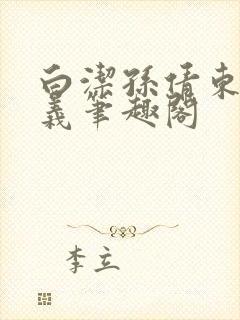 白潔孫倩東
義筆趣閣
李立